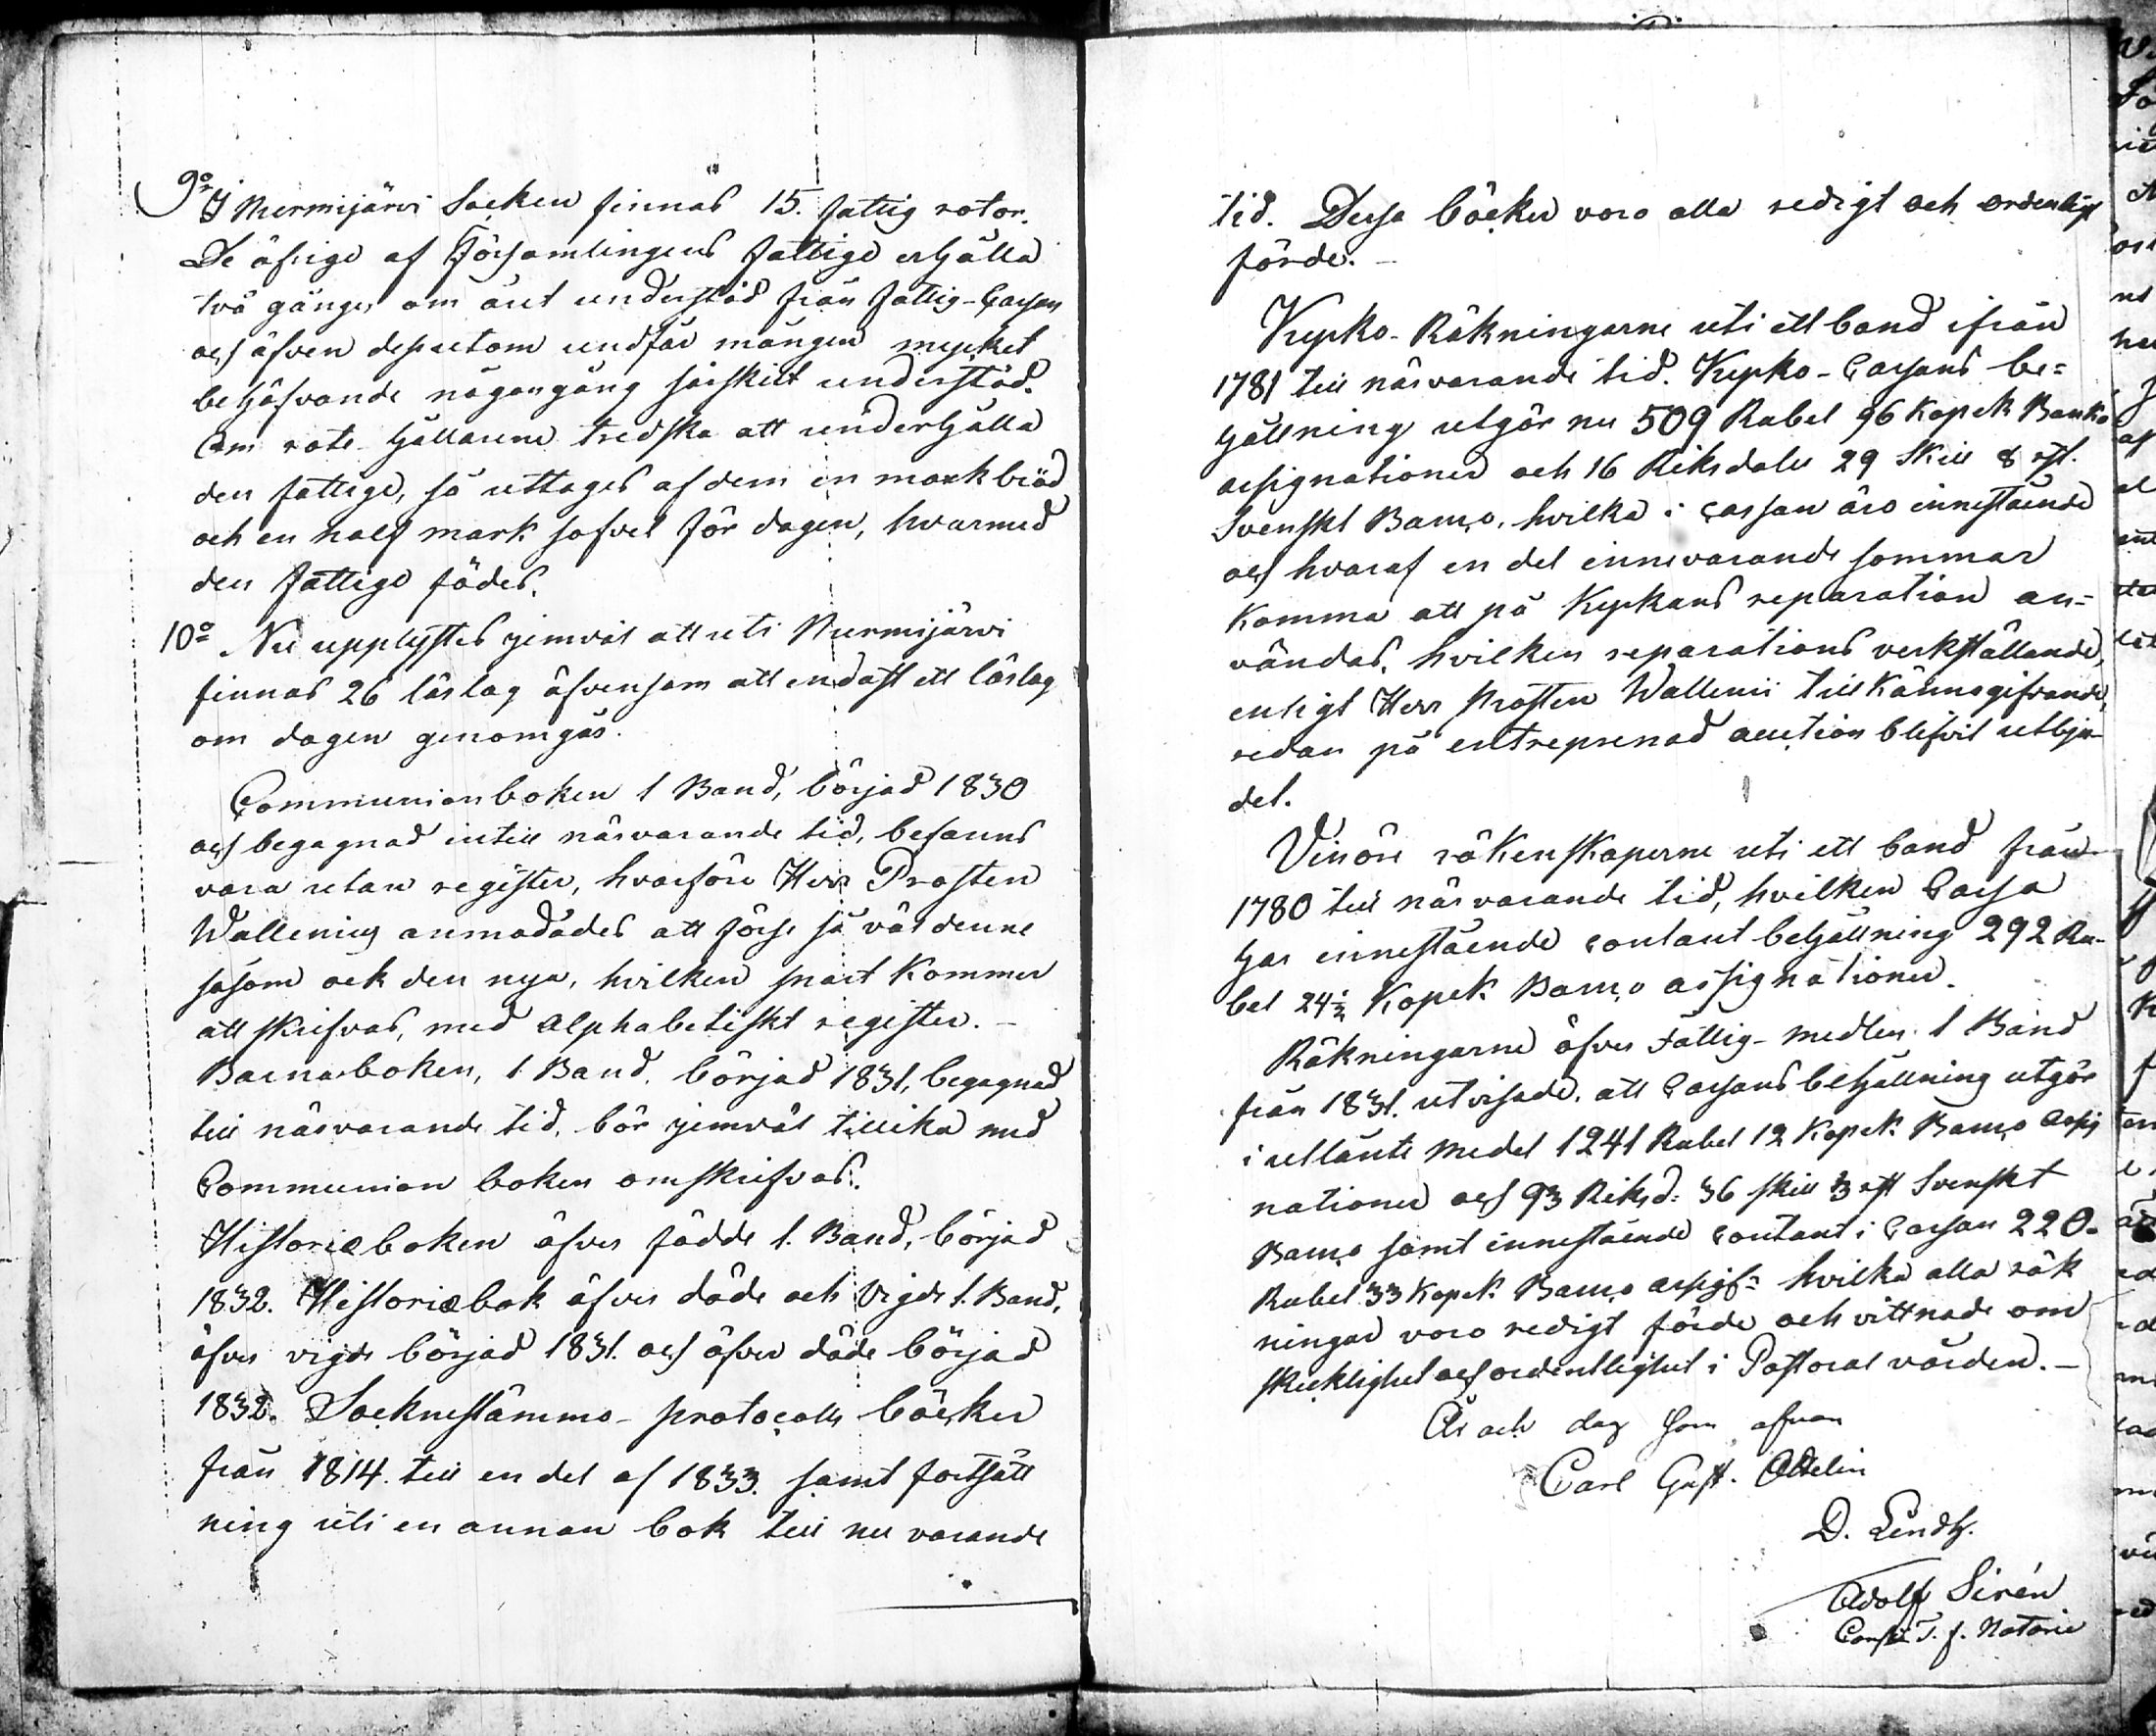 9o I Nurmijärvi Socken finnas 15. fattig rotor.
De öfrige af Församlingens fattige erhålla
två gånger om året understöd från fattig-Cassan
och äfven dessutom undfår mången mycket
behöfvande någongång särskilt understöd.
Om rote-hållarene tredska att underhålla
den fattige, så uttages af dem en mark bröd
och en half mark sofvel för dagen, hvarmed
den fattige födes.
10o Nu upplystes jemväl att uti Nurmijärvi
finnas 26 läslag äfvensom att endast ett läslag
om dagen genomgås.
Communionboken 1 Band, börjad 1830
och begagnad intill närvarande tid, befanns
vara utan register, hvarföre Herr Prosten
Wallenius anmodades att förse så väl denne
såsom ock den nya, hvilken snart kommer
att skrifvas, med alphabetiskt register. –
Barnaboken, 1 Band, börjad 1831, begagnad
till närvarande tid, bör jemväl tillika med
Communion boken omskrifvas.
Historiæboken öfver födde 1. Band, börjad
1832. Historiæbok öfver döde och vigde 1. Band,
öfver vigde börjad 1831. och öfver döde börjad
1832. Socknestämmo-protocolls böcker
från 1814. till en del af 1833. samt fortsätt
ning uti en annan bok till nu varande
tid. Dessa böcker voro alla redigt och ordenligt
förde. –
Kyrko-Räkningarne uti ett band ifrån
1781 till närvarande tid. Kyrko-Cassans be=
hållning utgör nu 509 Rubel 96 Kopek Banko
assignationer och 16 Riksdaler 29 Skill 8 rst.
Svenskt Banco, hvilka i Cassan äro innestående
och hvaraf en del innevarande sommar
komma att på Kyrkans reparation an=
vändas, hvilken reparations verkställande,
enligt Herr Prosten Wallenii tillkännagifvande,
redan på entreprenad auction blifvit utbju-
det.
Vinöre räkenskaperne uti ett band från
1780 till närvarande tid, hvilken Cassa
har innestående contant behållning 292 Ru-
bel 24½ Kopek Banco assignationer.
Räkningarne öfver Fattig-medlen 1 Band
från 1831. utvisade, att Cassans behållning utgör
i utlånte medel 1241 Rubel 12 Kopek Banco assig
nationer och 93 Riksd: 36 skill 3 rst Svenskt
Banco samt innestående contant i Cassan 220.
Rubel 33 Kopek Banco assigf: hvilka alla räk
ningar voro redigt förde och vittnade om
skicklighet och ordentlighet i Pastoral vården. –
År och dag som ofvan
Carl Gust. Ottelin
D. Lindh.
Adolf Sirén
Consist. T. f. Notarie